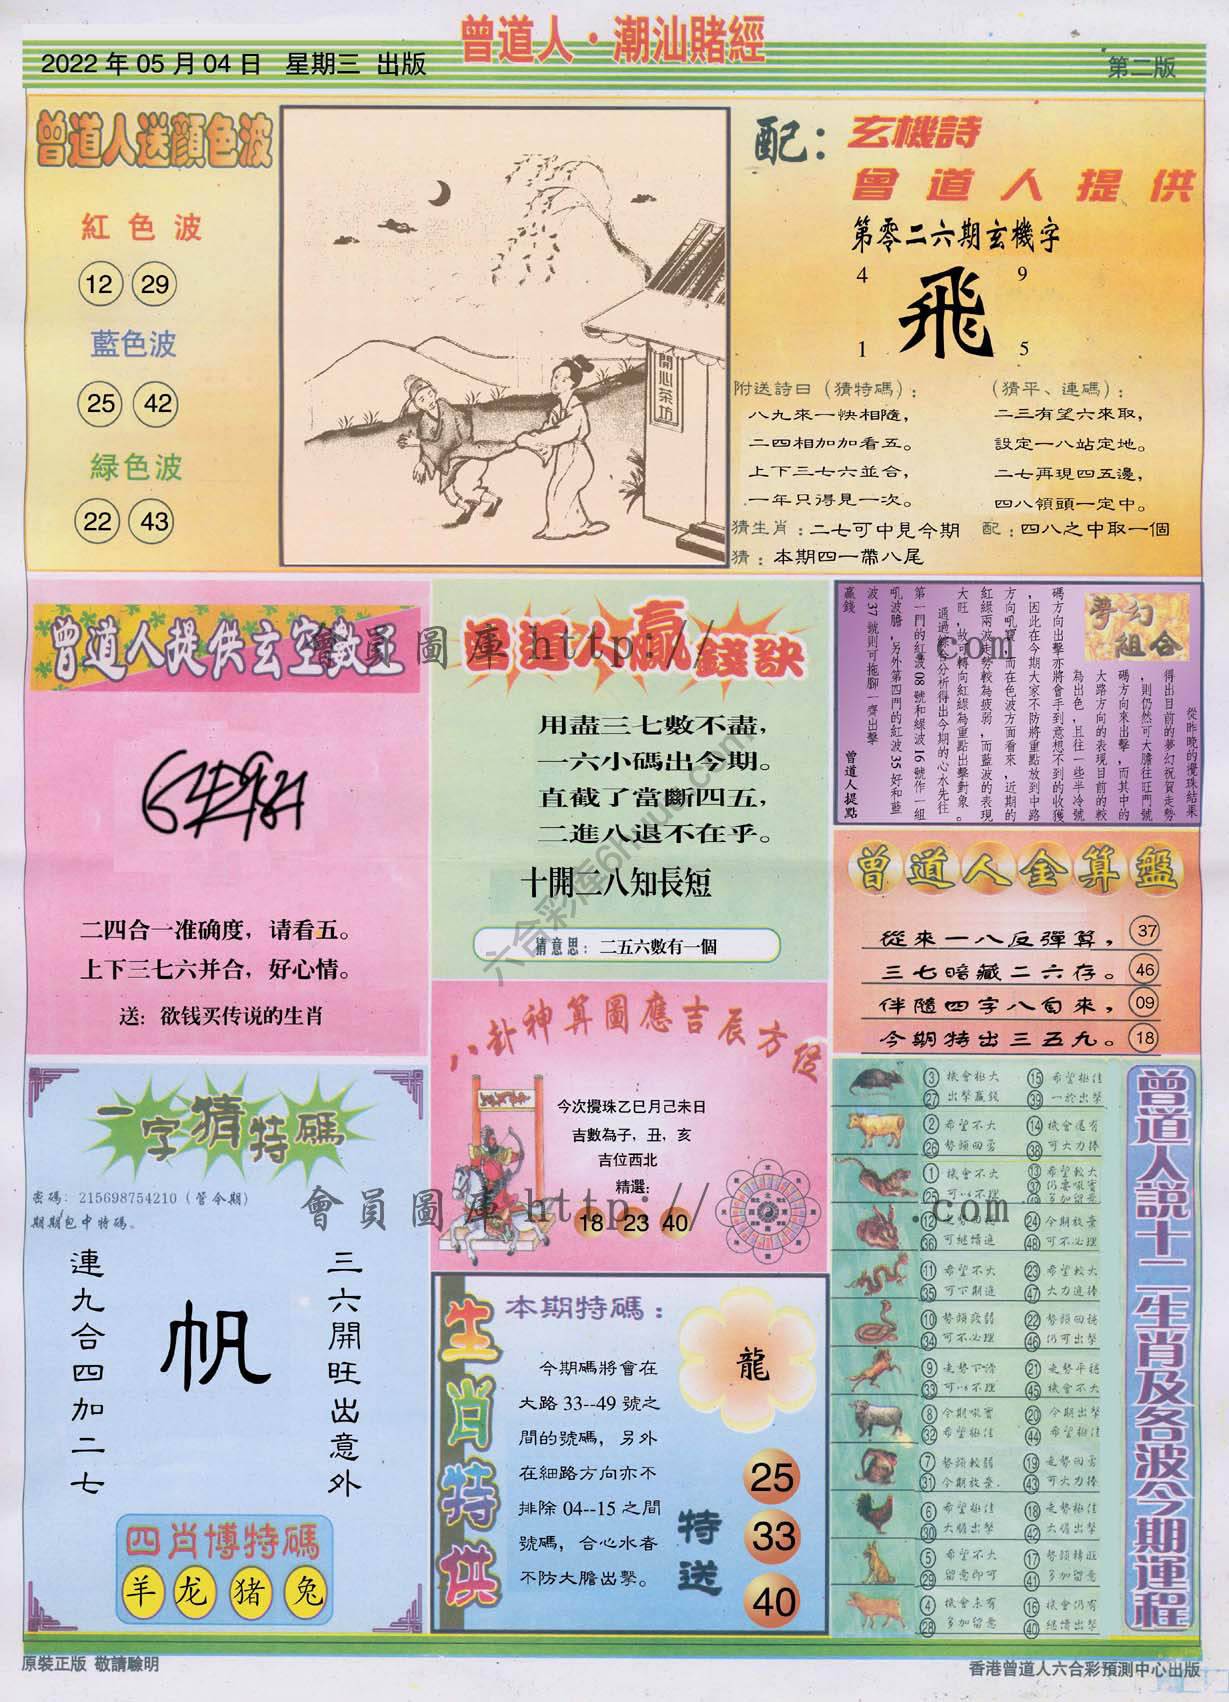 曾道人·潮汕賭經
2022年05月04日 星期三 出版
第二版
曾道人送顏色波
紅色波
12 29
藍色波
25 42
緑色波
22 43
開心茶坊
配：
玄機詩
曾道人提供
第零二六期玄機字
4 9
飛
1 5
附送詩曰（猜特碼）：
八九來一快相隨，
二四相加加看五。
上下三七六並合，
一年只得見一次。
（猜平、連碼）：
二三有望六來取，
設定一八站定地。
二七再現四五邊，
四八領頭一定中。
猜生肖：二七可中見今期 配：四八之中取一個
猜：本期四一帶八尾
曾道人提供玄空數王
二四合一准确度，请看五。
上下三七六并合，好心情。
送：欲钱买传说的生肖
曾道人贏錢訣
用盡三七數不盡，
一六小碼出今期。
直截了當斷四五，
二進八退不在乎。
十開二八知長短
猜意思：二五六數有一個
夢幻組合
從昨晚的攪珠結果
得出目前的夢幻祝賀走勢
，則仍然可大膽往旺門號
碼方向來出擊，而其中的
大路方向的表現目前的較
為出色，且往一些半冷號
碼方向出擊亦將會手到意想不到的收獲
，因此在今期大家不防將重點放到中路
方向吼寶，而在色波方面看來，近期的
紅綠兩波走勢較為疲弱，而藍波的表現
大旺，故可轉向紅綠為重點出擊對象。
通過綜合分析得出今期的心水先往
第一門的紅波08號和綠波16號作一組
吼波膽，另外第四門的紅波35好和藍
波37號則可拖腳一齊出擊
贏錢
曾道人提點
曾道人金算盤
從來一八反彈算，37
三七暗藏二六存。46
伴隨四字八自來，09
今期特出三五九。18
八卦神算圖應吉辰方位
今次攪珠乙巳月己未日
吉數為子，丑，亥
吉位西北
精選：
18 23 40
一字猜特碼
密碼：215698754210（管今期）
期期包中特碼。
三六開旺出意外
帆
連九合四加二七
四肖博特碼
羊 龙 猪 兔
生肖特供
本期特碼：
今期碼將會在
大路33--49號之
間的號碼，另外
在細路方向亦不
排除04--15之間
號碼，合心水者
不防大膽出擊。
龍
特送
25
33
40
曾道人説十二生肖及各波今期運程
3 機會極大 15 希望極佳
27 出擊贏錢 39 一於出擊
2 希望不大 14 機會還有
26 勢頭回勇 38 可大力捧
1 機會不大 13 希望較大
25 可以不理 37 仍要吼實
多加留意
12 24 今期放棄
36 可繼續追 48 可不必理
11 希望不大 23 希望較大
35 可下期追 47 大力追捧
10 勢頭疲弱 22 勢頭回穩
34 可不必理 46 仍可出擊
9 走勢下滑 21 走勢平穩
33 可以不理 45 機會不大
8 今期吼實 20 今期出擊
32 希望極佳 44 希望極佳
7 勢頭較弱 19 走勢回勇
31 今期放棄 43 可大力捧
6 希望極佳 18 走勢極佳
30 大膽出擊 42 大膽出擊
5 希望不大 17 勢頭轉旺
29 留意即可 41 多加留意
4 機會未有 16 機會仍有
28 多加留意 40 繼續出擊
會員圖庫 http:// .com
會員圖庫 http:// .com
原裝正版 敬請驗明
香港曾道人六合彩預測中心出版